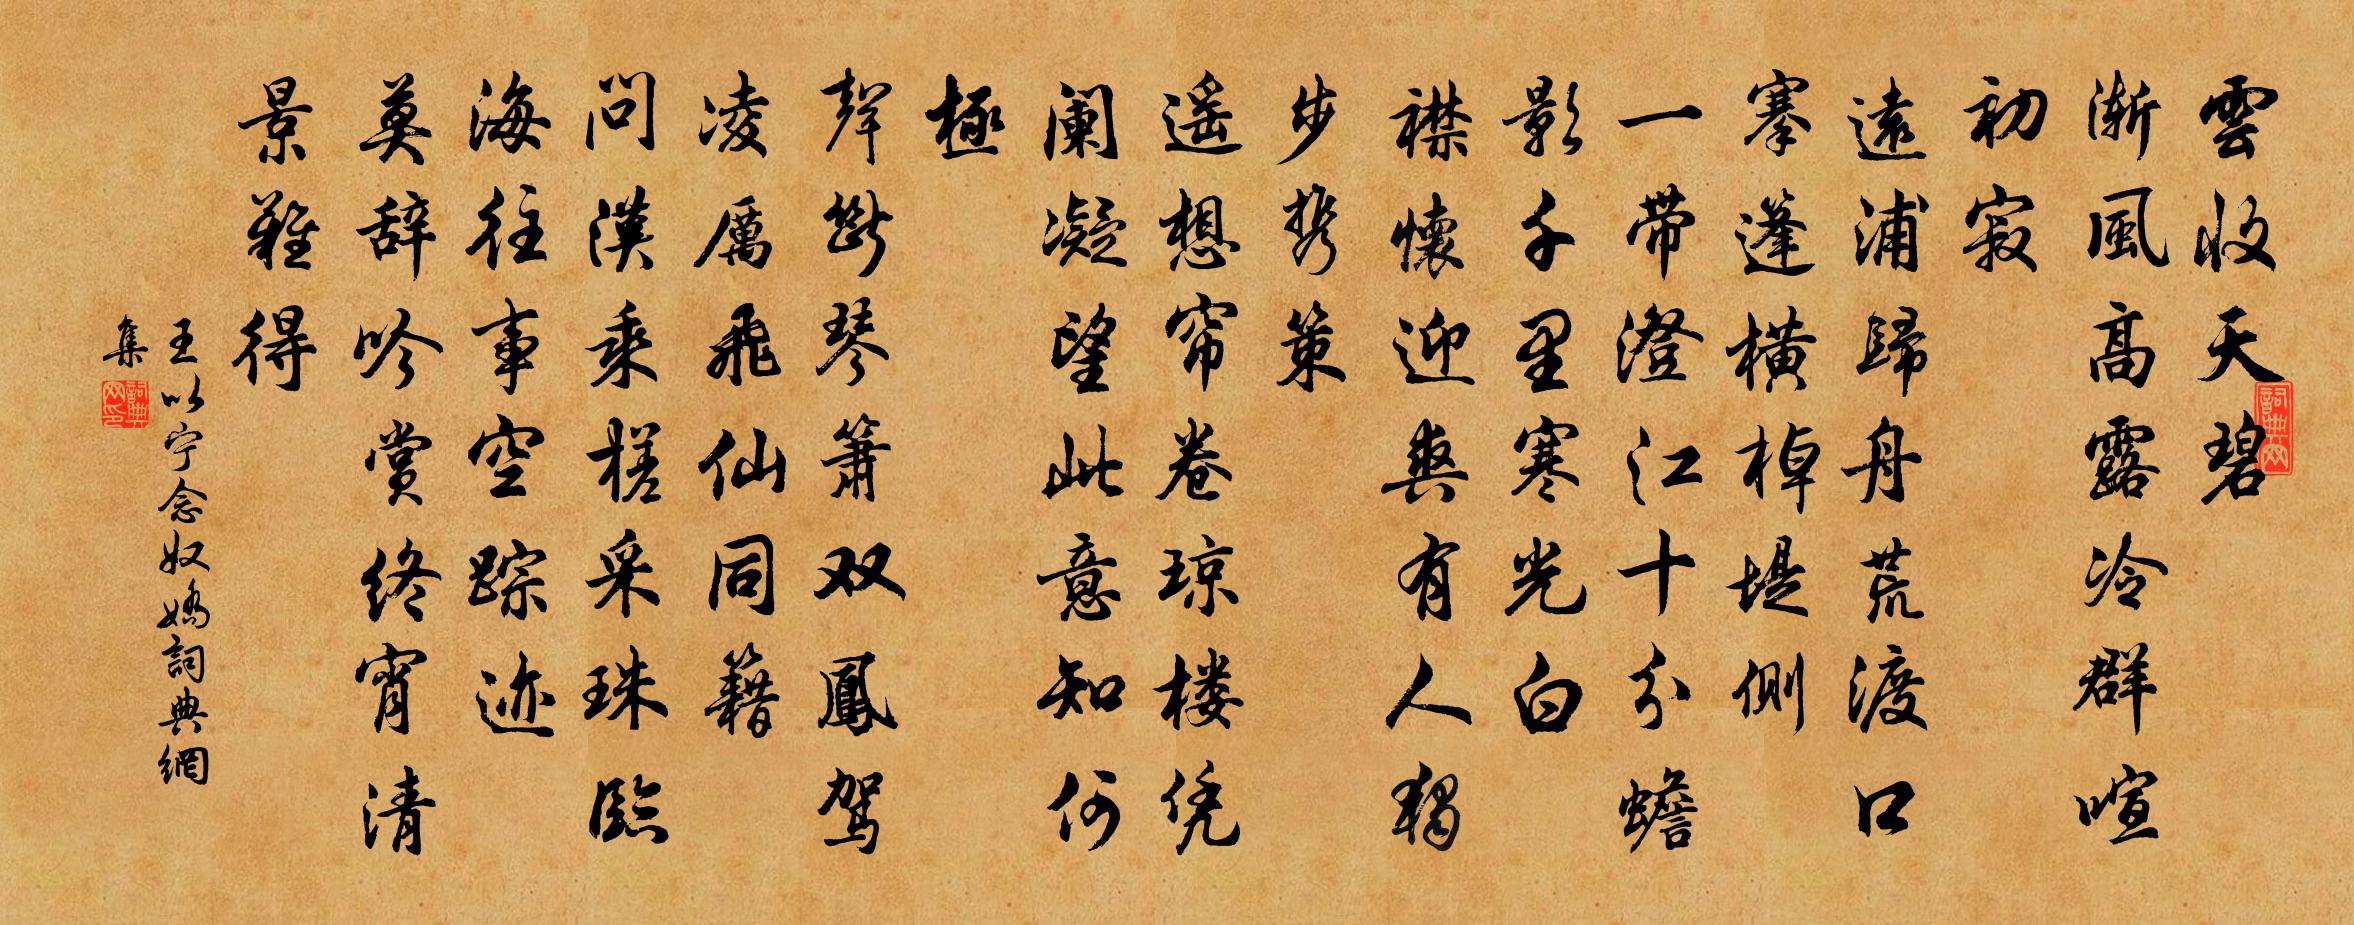 雲收天碧
漸風高露冷群喧
初寂
遠浦歸舟荒渡口
搴蓬橫棹堤側
一帶澄江十分蟾
影千里寒光白
襟懷迎爽有人獨
步携策
遥想帘卷琼楼凭
阑凝望此意知何
極
聲斷琴簫双鳳駕
凌厲飛仙同籍
問漢乘槎采珠臨
海往事空踪迹
莫辞吟赏终宵清
景難得
王以宁念奴嬌詞典網
集
詞典网
詞典网印